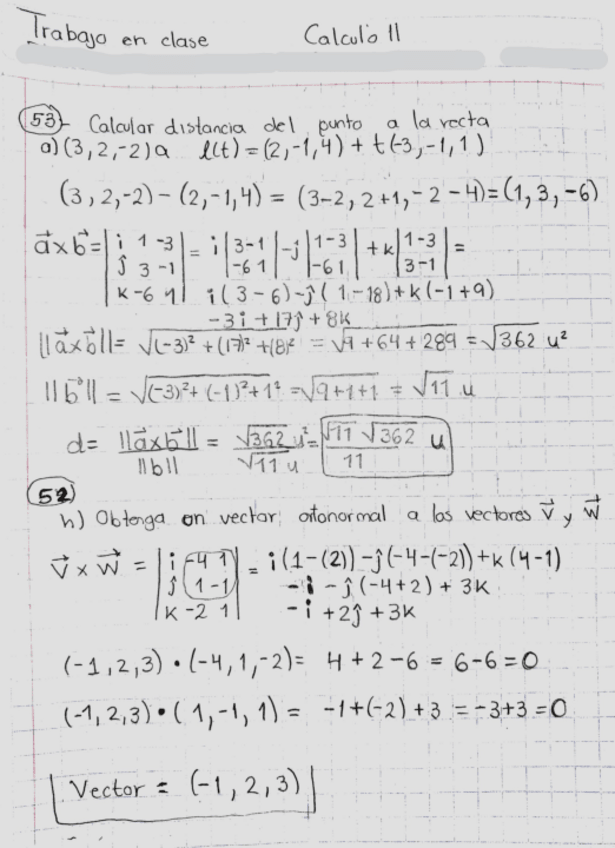 Trabajo en clase Calculo II
53- Calcular distancia del punto a la recta
a) (3, 2, -2) a l(t) = (2, -1, 4) + t(-3, -1, 1)
(3, 2, -2) - (2, -1, 4) = (3-2, 2+1, -2-4) = (1, 3, -6)
a⃗ x b⃗ = | i 1 -3 | = i | 3 -1 | - j | 1 -3 | + k | 1 -3 | =
| j 3 -1 | | -6 1 | | -6 1 | | 3 -1 |
| k -6 1 | i(3-6) - j(1-18) + k(-1+9)
-3i + 17j + 8k
||a⃗ x b⃗|| = √(-3)² + (17)² + (8)² = √9 + 64 + 289 = √362 u²
||b⃗|| = √(-3)² + (-1)² + 1² = √9+1+1 = √11 u
d = ||a⃗ x b⃗|| / ||b|| = √362 u² / √11 u = √11 √362 / 11 u
52)
h) Obtenga un vector ortonormal a los vectores v⃗ y w⃗
v⃗ x w⃗ = | i -4 1 | = i(1-(2)) - j(-4-(-2)) + k(4-1)
| j 1 -1 | -i - j(-4+2) + 3k
| k -2 1 | -i + 2j + 3k
(-1, 2, 3) • (-4, 1, -2) = 4 + 2 - 6 = 6 - 6 = 0
(-1, 2, 3) • (1, -1, 1) = -1 + (-2) + 3 = -3 + 3 = 0
Vector = (-1, 2, 3)